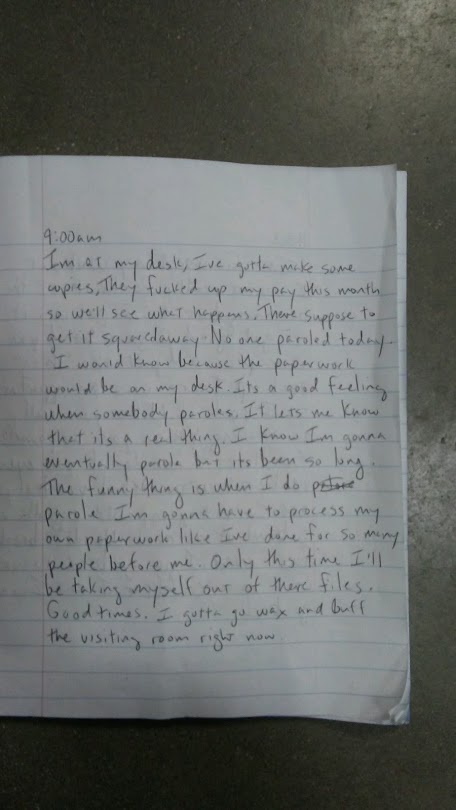 9:00am
Im at my desk, Ive gotta make some
copies, They fucked up my pay this month
so we'll see what happens. There suppose to
get it squaredaway. No one paroled today.
I would know because the paperwork
would be on my desk. Its a good feeling
when somebody paroles. It lets me know
that its a real thing. I know Im gonna
eventually parole but its been so long.
The funny thing is when I do
parole Im gonna have to process my
own paperwork like Ive done for so many
people before me. Only this time I'll
be taking myself out of there files.
Good times. I gotta go wax and buff
the visiting room right now.